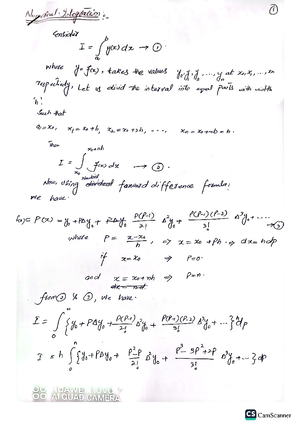 Numerical Integration:- ①
Consider
I = ∫ₐᵇ y(x) dx → ①.
where y = f(x), takes the values y₀, y₁, y₂, ..., yₙ at x₀, x₁, ..., xₙ
respectively, Let us divid the interval into equal parts with width
'h'
Such that
a = x₀, x₁ = x₀+h, x₂ = x₀+2h, ----, xₙ = x₀+nh = b.
Then
I = ∫ₓ₀^(x₀+nh) f(x) dx → ②.
Now, using forward difference formula:
we have
f(x) = P(x) = y₀ + PΔy₀ + P(P-1)/2! Δ²y₀ + P(P-1)(P-2)/3! Δ³y₀ + ---- → ③
where P = (x-x₀)/h, ⇒ x = x₀ + Ph ⇒ dx = hdp
if x = x₀ ⇒ P = 0.
and x = x₀+nh ⇒ P = n.
from ② & ③, we have.
I = ∫₀ⁿ {y₀ + PΔy₀ + P(P-1)/2! Δ²y₀ + P(P-1)(P-2)/3! Δ³y₀ + ...} dp
I = h ∫₀ⁿ {y₀ + PΔy₀ + (P²-P)/2! Δ²y₀ + (P³-3P²+2P)/3! Δ³y₀ + ...} dp
AI QUAD CAMERA
CS CamScanner